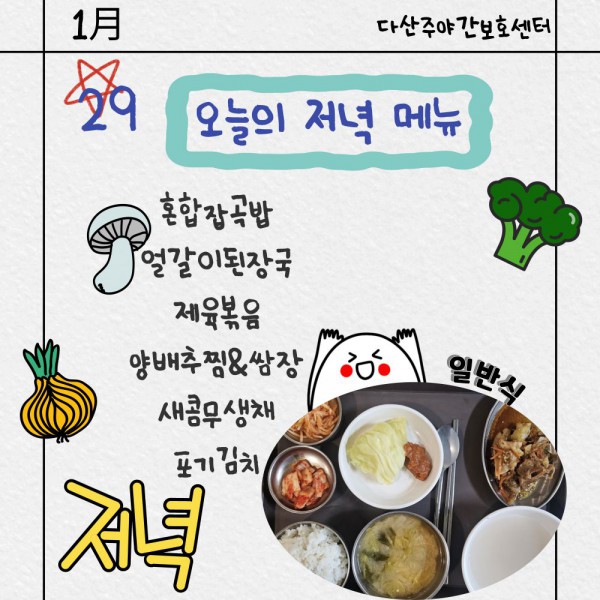 1月
다산주야간보호센터
29
오늘의 저녁 메뉴
혼합잡곡밥
얼갈이된장국
제육볶음
양배추찜&쌈장
새콤무생채
포기김치
일반식
저녁